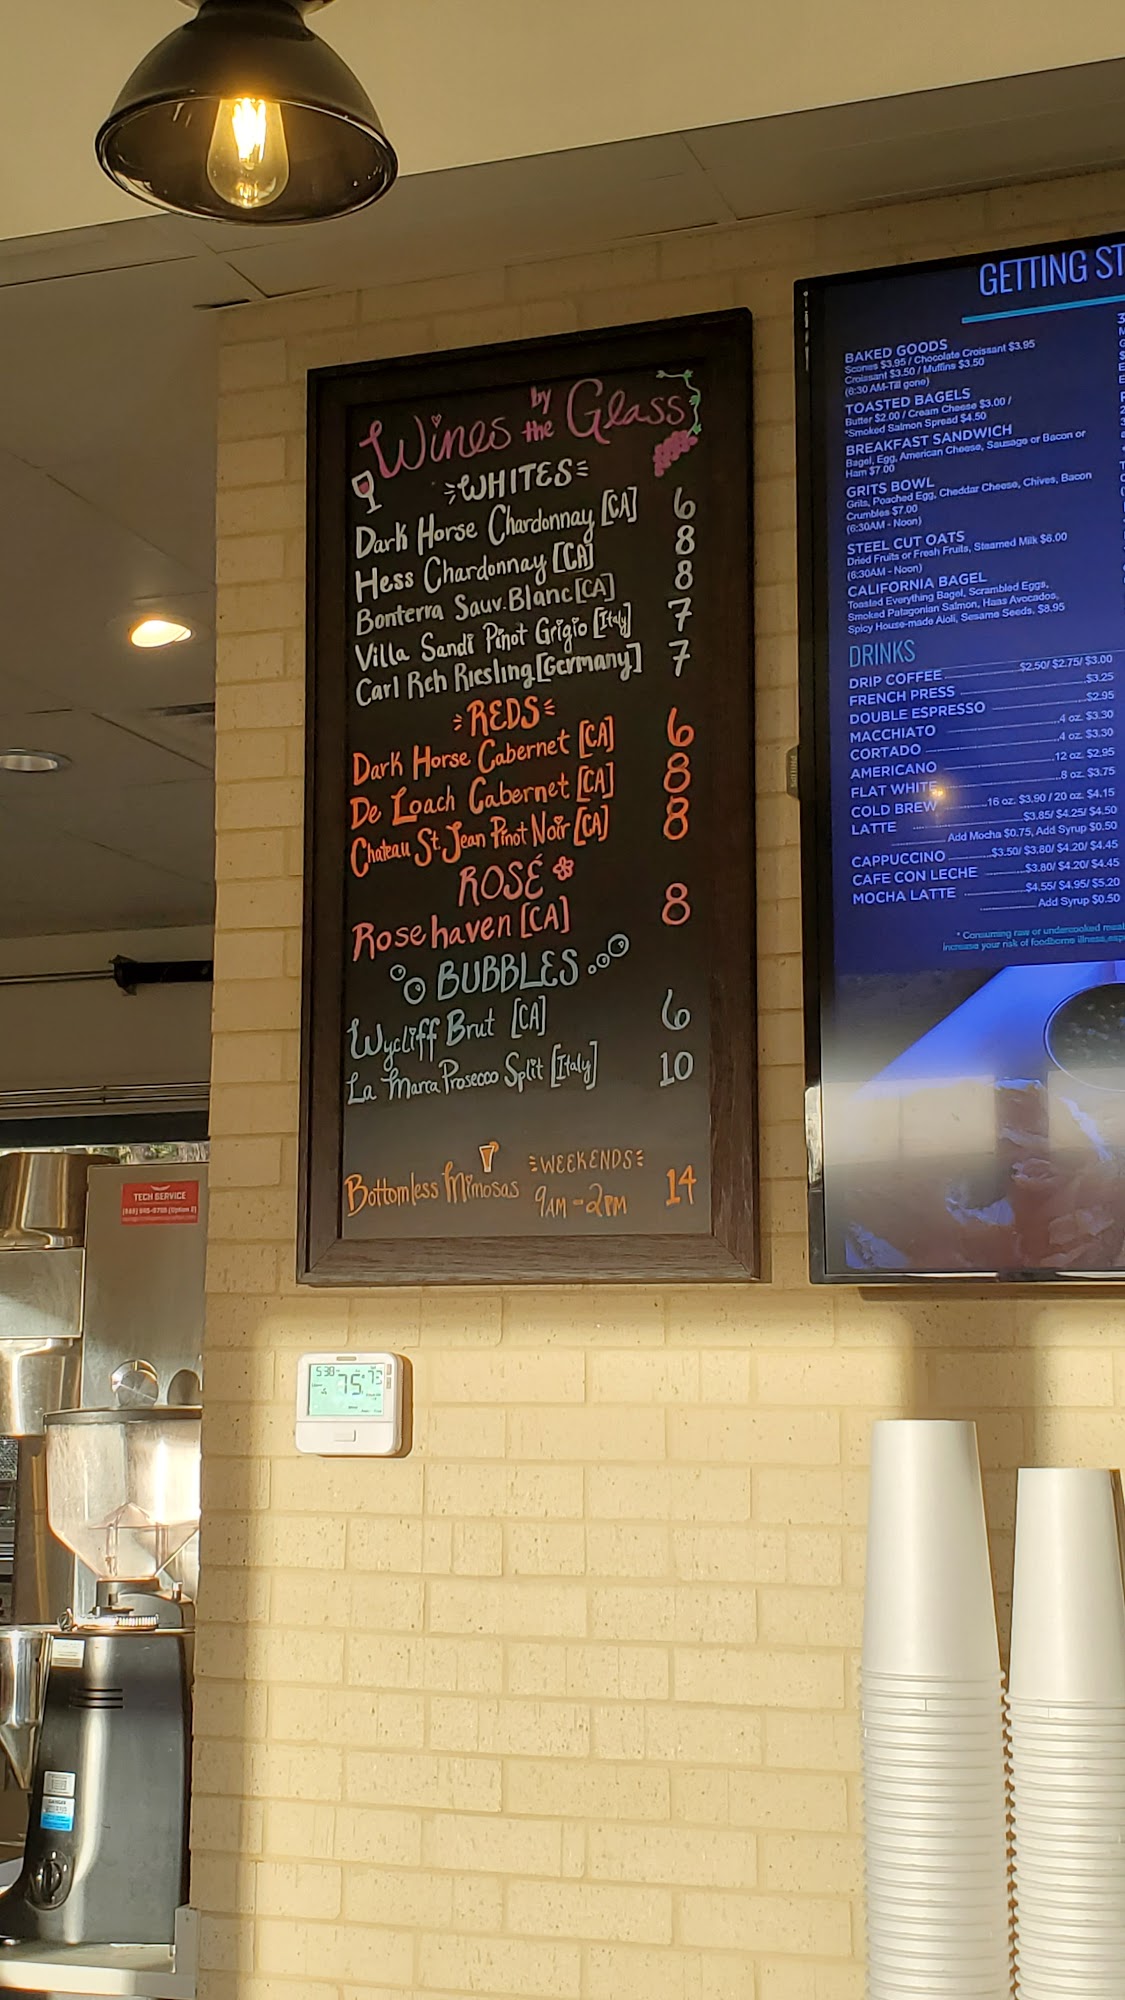 Wines by the Glass
WHITES
Dark Horse Chardonnay [CA] 6
Hess Chardonnay [CA] 8
Bonterra Sauv. Blanc [CA] 8
Villa Sandi Pinot Grigio [Italy] 7
Carl Reh Riesling [Germany] 7
REDS
Dark Horse Cabernet [CA] 6
De Loach Cabernet [CA] 8
Chateau St. Jean Pinot Noir [CA] 8
ROSÉ
Rosehaven [CA] 8
BUBBLES
Wycliff Brut [CA] 6
La Marca Prosecco Split [Italy] 10
Bottomless Mimosas WEEKENDS 14
9AM-2PM
GETTING ST
BAKED GOODS
Scones $3.95 / Chocolate Croissant $3.95
Croissant $3.50 / Muffins $3.50
(6:30 AM-Till gone)
TOASTED BAGELS
Butter $2.00 / Cream Cheese $3.00 /
*Smoked Salmon Spread $4.50
BREAKFAST SANDWICH
Bagel, Egg, American Cheese, Sausage or Bacon or
Ham $7.00
GRITS BOWL
Grits, Poached Egg, Cheddar Cheese, Chives, Bacon
Crumbles $7.00
(6:30AM - Noon)
STEEL CUT OATS
Dried Fruits or Fresh Fruits, Steamed Milk $6.00
(6:30AM - Noon)
CALIFORNIA BAGEL
Toasted Everything Bagel, Scrambled Eggs,
Smoked Patagonian Salmon, Haas Avocados,
Spicy House-made Aioli, Sesame Seeds, $8.95
DRINKS
DRIP COFFEE $2.50/ $2.75/ $3.00
FRENCH PRESS $3.25
DOUBLE ESPRESSO $2.95
MACCHIATO 4 oz. $3.30
CORTADO 4 oz. $3.30
AMERICANO 12 oz. $2.95
FLAT WHITE 8 oz. $3.75
COLD BREW 16 oz. $3.90 / 20 oz. $4.15
LATTE $3.85/ $4.25/ $4.50
Add Mocha $0.75, Add Syrup $0.50
CAPPUCCINO $3.50/ $3.80/ $4.20/ $4.45
CAFE CON LECHE $3.80/ $4.20/ $4.45
MOCHA LATTE $4.55/ $4.95/ $5.20
Add Syrup $0.50
* Consuming raw or undercooked
increase your risk of foodborne illness,
TECH SERVICE
5:30 75 73